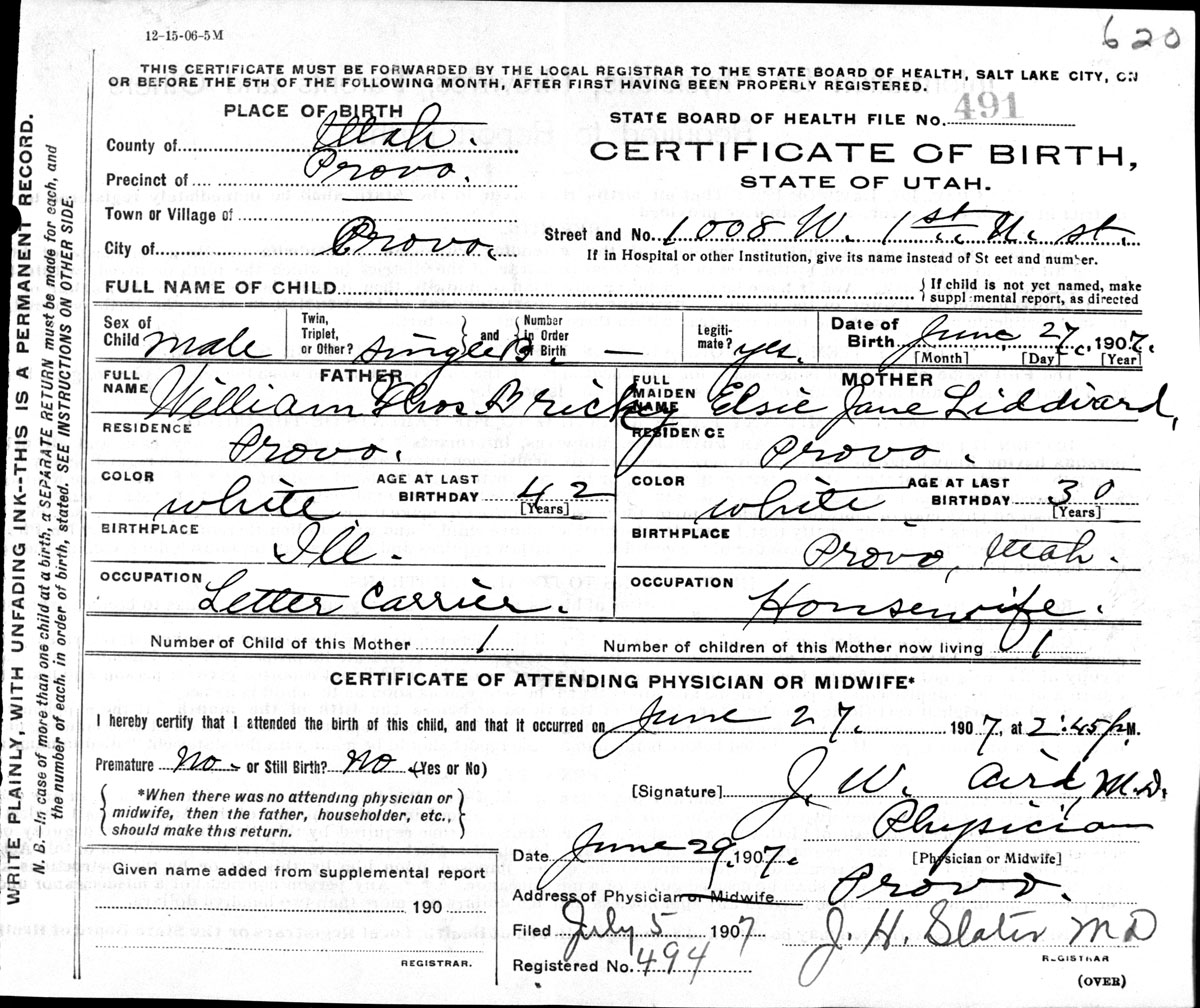 12-15-06-5M
620
THIS CERTIFICATE MUST BE FORWARDED BY THE LOCAL REGISTRAR TO THE STATE BOARD OF HEALTH, SALT LAKE CITY, ON
OR BEFORE THE 5TH OF THE FOLLOWING MONTH, AFTER FIRST HAVING BEEN PROPERLY REGISTERED.
PLACE OF BIRTH
County of Utah.
Precinct of Provo.
Town or Village of
City of Provo.
STATE BOARD OF HEALTH FILE No. 491
CERTIFICATE OF BIRTH,
STATE OF UTAH.
Street and No. 1008 W. 1st N. st.
If in Hospital or other Institution, give its name instead of St eet and number.
FULL NAME OF CHILD
{ If child is not yet named, make
suppl mental report, as directed
Sex of Child male
Twin, Triplet, or Other? single } and { Number in Order of Birth —
Legiti-mate? yes.
Date of Birth June 27, 1907.
[Month] [Day] [Year]
FATHER
FULL NAME William Thos Brickey
RESIDENCE Provo.
COLOR white AGE AT LAST BIRTHDAY 42
[Years]
BIRTHPLACE Ill.
OCCUPATION Letter Carrier.
MOTHER
FULL MAIDEN NAME Elsie Jane Liddiard,
RESIDENCE Provo.
COLOR white AGE AT LAST BIRTHDAY 30
[Years]
BIRTHPLACE Provo, Utah.
OCCUPATION Housewife.
Number of Child of this Mother 1
Number of children of this Mother now living 1
CERTIFICATE OF ATTENDING PHYSICIAN OR MIDWIFE*
I hereby certify that I attended the birth of this child, and that it occurred on June 27. 1907, at 2:45 p.M.
Premature No. or Still Birth? No. (Yes or No)
{ *When there was no attending physician or
midwife, then the father, householder, etc.,
should make this return. }
[Signature] J. W. Aird, M.D.
Physician
[Physician or Midwife]
Date June 29, 1907.
Address of Physician or Midwife Provo.
Given name added from supplemental report
190
REGISTRAR.
Filed July 5 1907
J. H. Slater MD
REGISTRAR
Registered No. 494
(OVER)
WRITE PLAINLY, WITH UNFADING INK--THIS IS A PERMANENT RECORD.
N. B. In case of more than one child at a birth, a SEPARATE RETURN must be made for each, and
the number of each. in order of birth, stated. SEE INSTRUCTIONS ON OTHER SIDE.